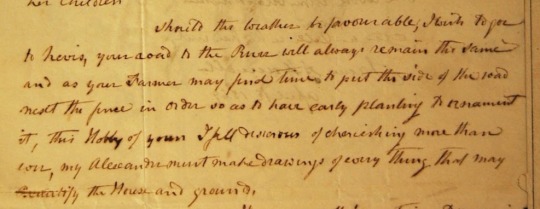 her Children
Should the weather be favourable, I wish to goe
to Nevis, your road to the River will always remain the same
and as your Farmer may find time to put the side of the road
next the fence in order so as to have early planting to ornament
it, this Hobby of yours I feel desirous of cherishing more than
ever, my Alexander must make drawings of every thing that may
Beautify the House and grounds,